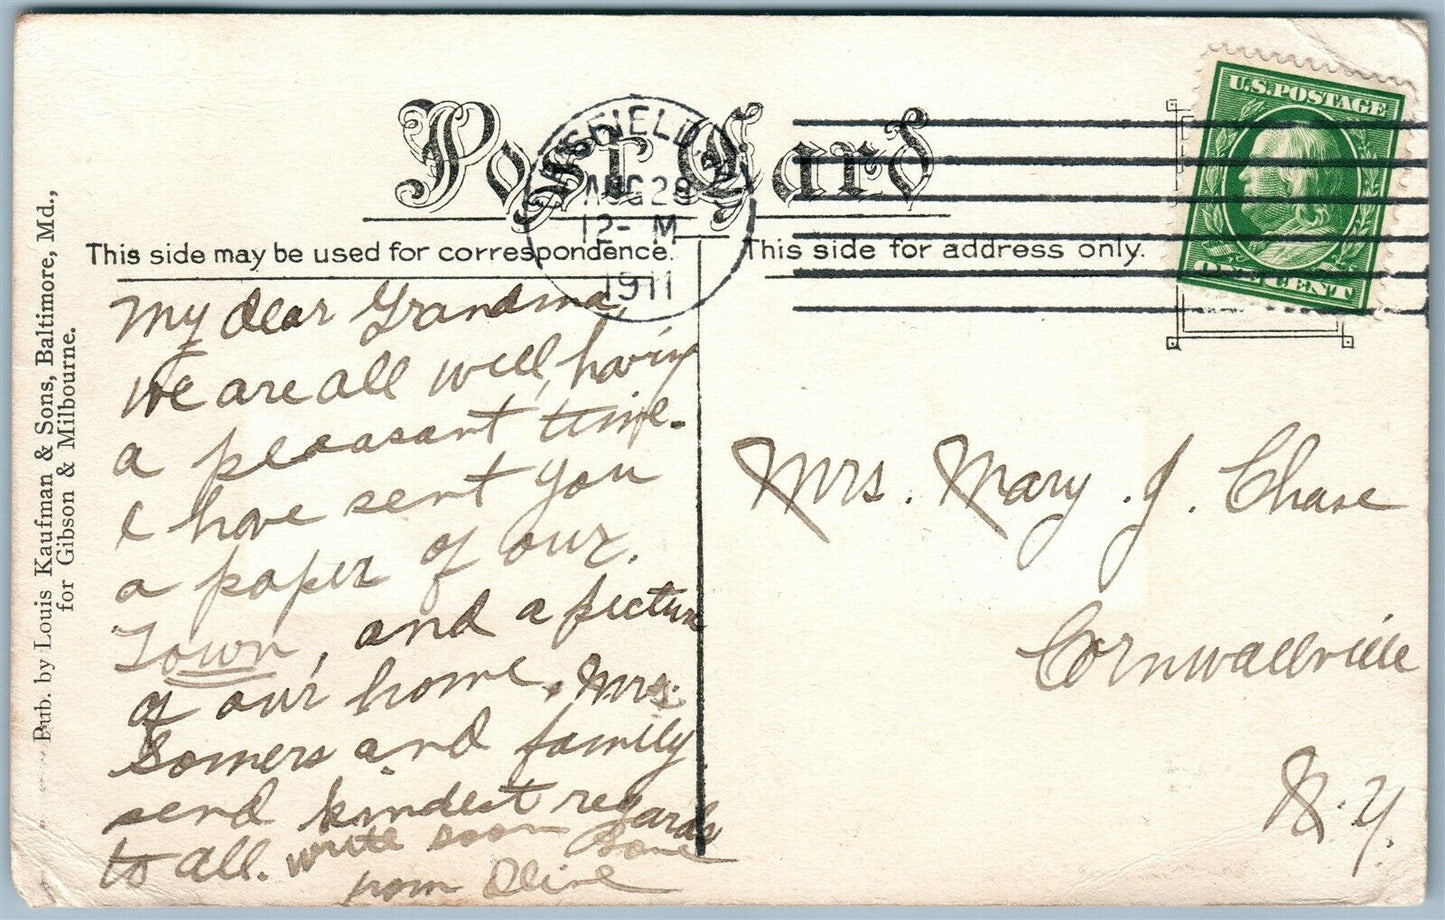 Post Card
U.S. POSTAGE
ONE CENT
AUG 28
12- M
1911
This side may be used for correspondence.
This side for address only.
Pub. by Louis Kaufman & Sons, Baltimore, Md.,
for Gibson & Milbourne.
My dear Grandma,
We are all well, having
a pleasant time.
I have sent you
a paper of our
Town, and a picture
of our home. Mrs.
Somers and family
send kindest regards
to all. write soon Love
from Oline
Mrs. Mary J. Chase
Cornwallville
N.Y.